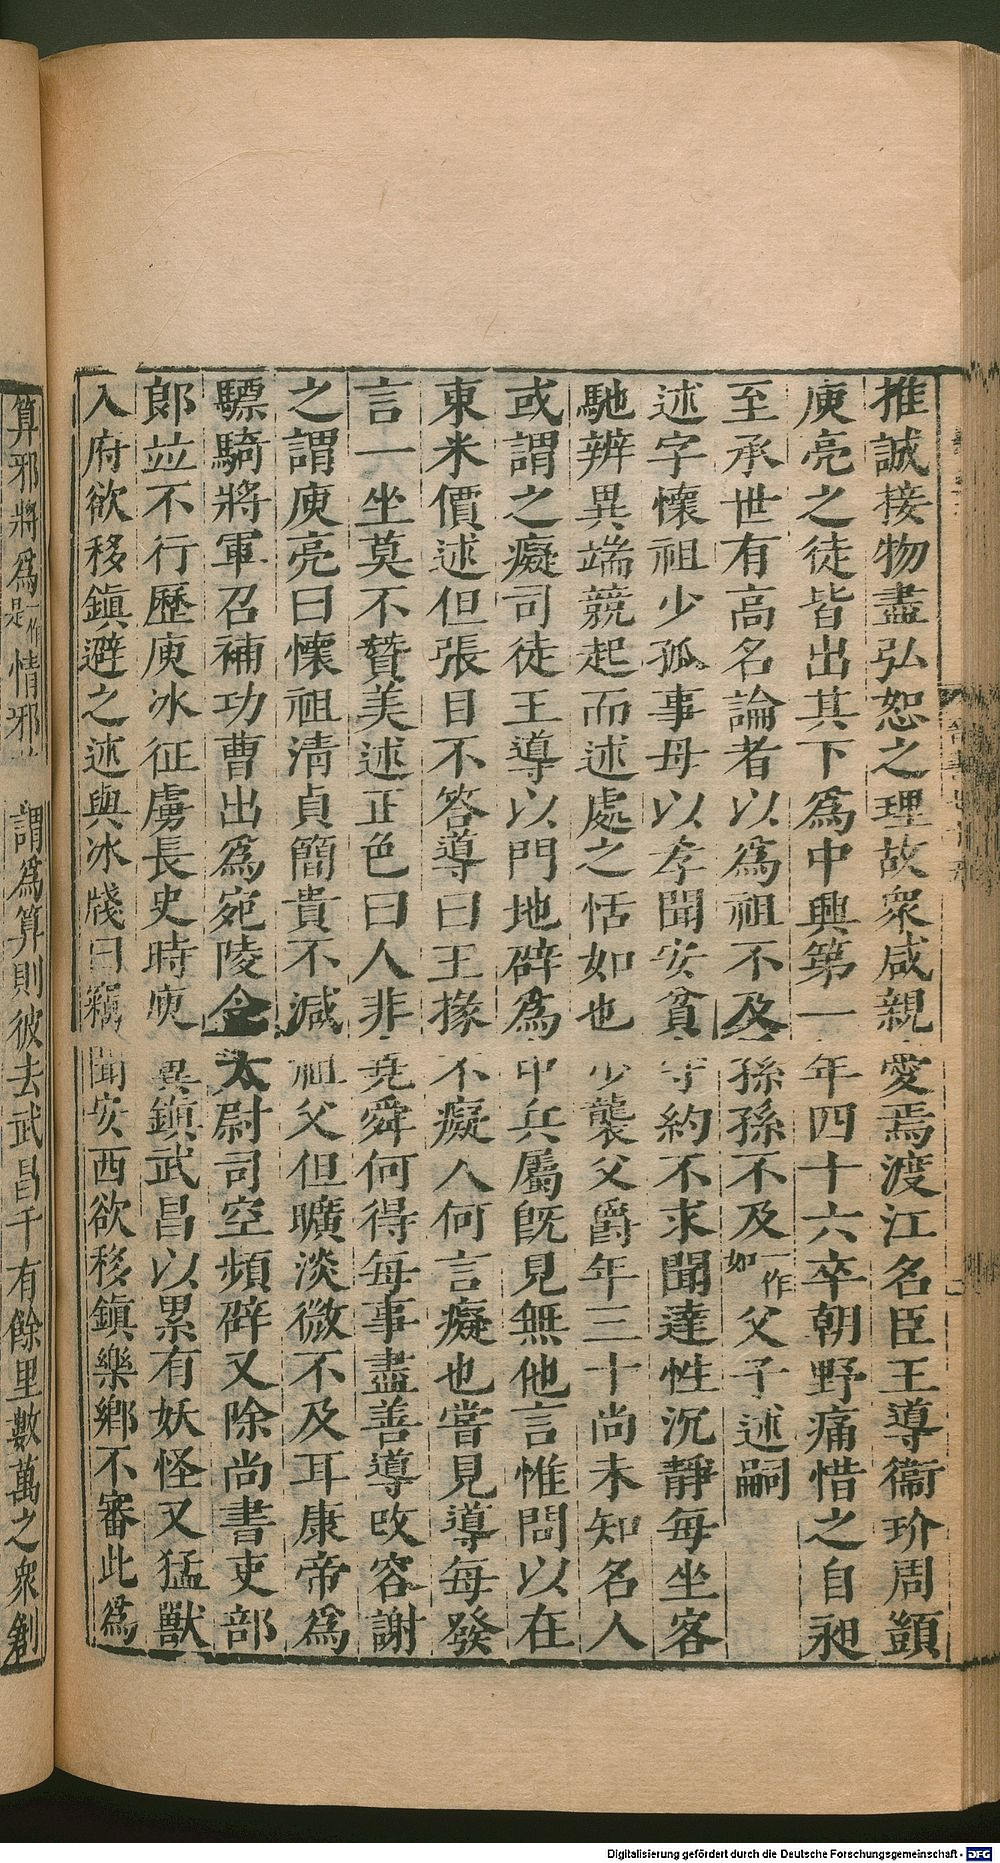 推誠接物盡弘恕之理故衆咸親愛焉渡江名臣王導衞玠周顗
庾亮之徒皆出其下爲中興第一年四十六卒朝野痛惜之自昶
至承世有高名論者以爲祖不及孫孫不及一作如父子述嗣
述字懷祖少孤事母以孝聞安貧守約不求聞達性沉靜每坐客
馳辨異端競起而述處之恬如也少襲父爵年三十尚未知名人
或謂之癡司徒王導以門地辟爲中兵屬旣見無他言惟問以在
東米價述但張目不答導曰王掾不癡人何言癡也嘗見導每發
言一坐莫不贊美述正色曰人非堯舜何得每事盡善導改容謝
之謂庾亮曰懷祖清貞簡貴不減祖父但曠淡微不及耳康帝爲
驃騎將軍召補功曹出爲宛陵令太尉司空頻辟又除尚書吏部
郞竝不行歷庾冰征虜長史時庾翼鎭武昌以累有妖怪又猛獸
入府欲移鎭避之述與冰牋曰竊聞安西欲移鎭樂鄉不審此爲
算邪將爲一作是情邪謂爲算則彼去武昌千有餘里數萬之衆創
Digitalisierung gefördert durch die Deutsche Forschungsgemeinschaft - DFG